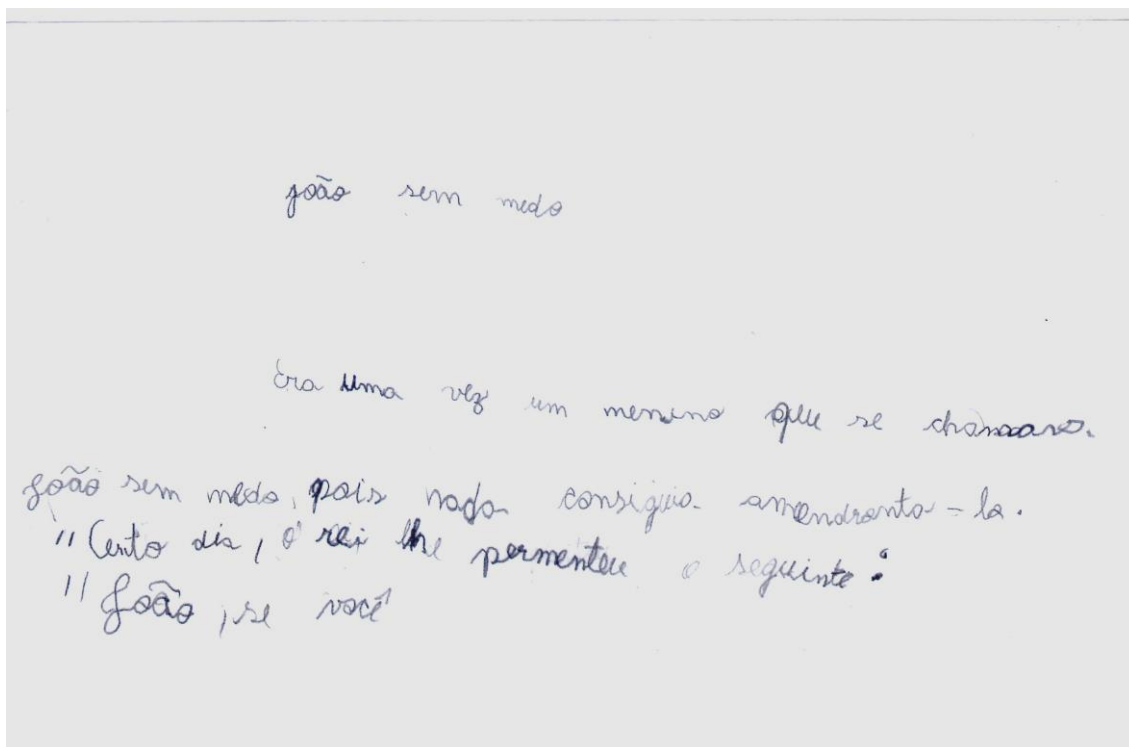 joão sem medo
Era uma vez um menino que se chamava.
João sem medo, pois nada consiguia amendronta-la.
"Certo dia, o rei lhe permenteu o seguinte:
"João, se você